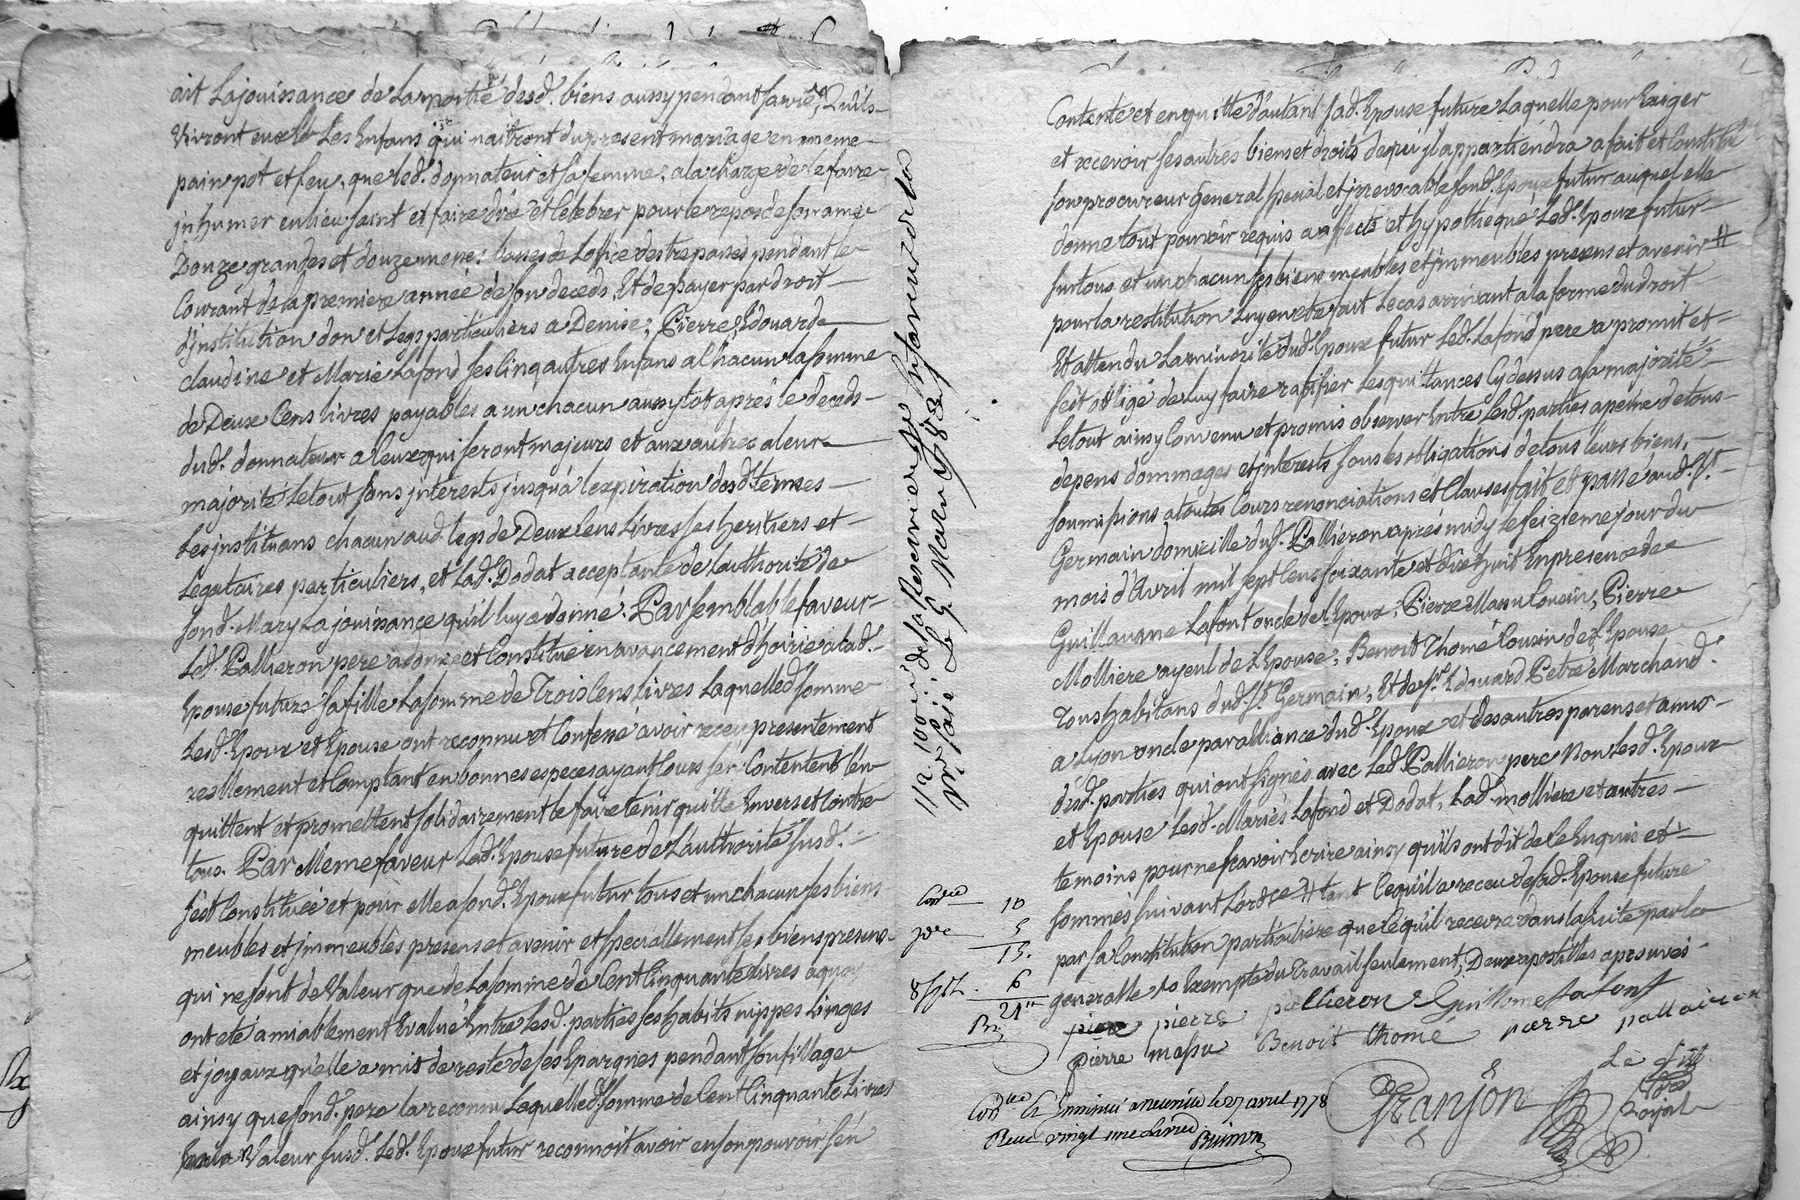 ait La jouissance de La moitié desd. biens aussy pendant sa vie, Quils
Vivront eux et Les Enfans qui naitront du present mariage en meme
pain pot et feu, que led. donnateur et sa femme, a la charge de le faire
jnhumer en lieu saint et faire dire et Celebrer pour le repos de son ame
Douze grandes et douze messes basses de Loffice des trepassés pendant le
Courant de la premiere année de son deceds, Et de payer par droit
d'jnstitution don et Legs particuliers a Denise, Pierre, Edouard
claudine et Marie Lafond ses Cinq autres Enfans a Chacun la somme
de Deux Cens livres payables a un chacun aussytot après le deceds
dud. donnateur a Ceux qui seront majeurs et aux autres a leur
majorité Le tout sans jnterests jusqu'a lexpiration desd. termes
Les jnstituans chacun aud. legs de Deux Cens Livres ses heritiers et
Legataires particuliers, et Lad. Dodat acceptante de Lauthorité de
sond. Mary La jouissance qu'il luy a donné. Par semblable faveur
Led. Pallieron pere a donné et Constitué en avancement d'hoirie a lad.
Epouse future sa fille La somme de Trois Cens Livres Laquelle d. somme
Lesd. Epoux et Epouse ont reconnu et Confessé avoir receu presentement
reellement et Comptant en bonnes especes ayant Cours s'en Contentent L'en
quittent et promettent solidairement le faire tenir quitte Envers et Contre
tous. Par Meme faveur Lad. Epouse future de L'authorité susd.
s'est Constituée et pour elle a sond. Epoux futur tous et un chacun ses biens
meubles et jmmeubles presens et avenir et specialement ses biens presens
qui ne sont de Valeur que de La somme de Cent Cinquante Livres a quoy
ont eté amiablement Evalué Entre Lesd. parties ses habits nippes Linges
et joyaux qu'elle a mis de reste de ses Epargnes pendant son fillage
ainsy que sond. pere la reconnu Laquelle d. somme de Cent Cinquante Livres
Valeur susd. Led. Epoux futur reconnoit avoir en son pouvoir s'en
Le 9 Mars 1783
10
5
15
6
21
Controllé a le 27 avril 1778
Receu vingt une Livres
Contente et en quitte d'autant sad. Epouse future Laquelle pour Exiger
et recevoir ses autres biens et droits de qui jl appartiendra a fait et Constitué
son procureur General special et jrrevocable sond. Epoux futur auquel elle
donne tout pouvoir requis a affecté et hypothequé Led. Epoux futur
sur tous et un chacun ses biens meubles et jmmeubles presens et avenir #
pour la restitution Le cas arrivant a la forme du droit
Et attendu La minorité dud. Epoux futur Led. Lafond pere a promit et
s'est obligé de Luy faire ratifier Les quittances Cy dessus a sa majorité
Le tout ainsy Convenu et promis observer Entre Lesd. parties a peine de tous
depens dommages et jnterests sous les obligations de tous leurs biens,
soumissions a toutes Cours renonciations et Clauses fait et passé aud. St.
Germain domicille dud. Pallieron après midy le seizieme jour du
mois d'Avril mil sept Cens soixante et dix huit En presence de
Guillaume Lafont oncle de l'Epoux, Pierre Massu Cousin, Pierre
Molliere ayeul de L'Epouse, Benoit Thomé Cousin de L'Epouse
Tous habitans dud. St. Germain, Et de Sr. Edouard Petre Marchand
a Lyon oncle par alliance dud. Epoux et des autres parens et amis
desd. parties qui ont signés avec Led. Pallieron pere Non Lesd. Epoux
et Epouse Lesd. Mariés Lafond et Dodat, Lad. molliere et autres
temoins pour ne scavoir Ecrire ainsy qu'ils ont dit de ce Enquis et
sommés suivant Lordce # tant Ce qu'il a receu de sad. Epouse future
par sa Constitution particuliere que Ce qu'il recevra dans la suite par la
generalle Exempte du Travail seulement, Deux apostilles aprouvés
pierre pallieron Guillome Lafont
pierre massu Benoit thomé pierre
Granjon
Royal